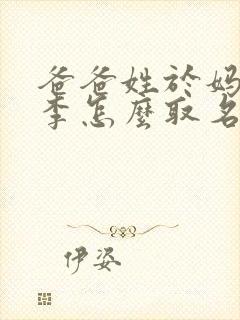 爸爸姓於妈
李怎麼取名
伊姿